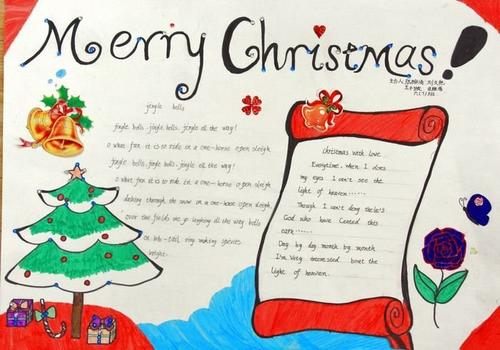 Merry Christmas!
jingle bells
jingle bells, jingle bells, jingle all the way!
O what fun it is to ride in a one-horse open sleigh
jingle bells, jingle bells, jingle all the way!
O what fun it is to ride in a one-horse open sleigh
dashing through the snow in a one-horse open sleigh,
over the fields we go laughing all the way bells
on bob-tail ring making spirits
bright.
Christmas with love
Everytime, when I does
my eyes I can't see the
light of heaven......
Though I can't
God who have
Day by day month by month
I'm very the
light of heaven.